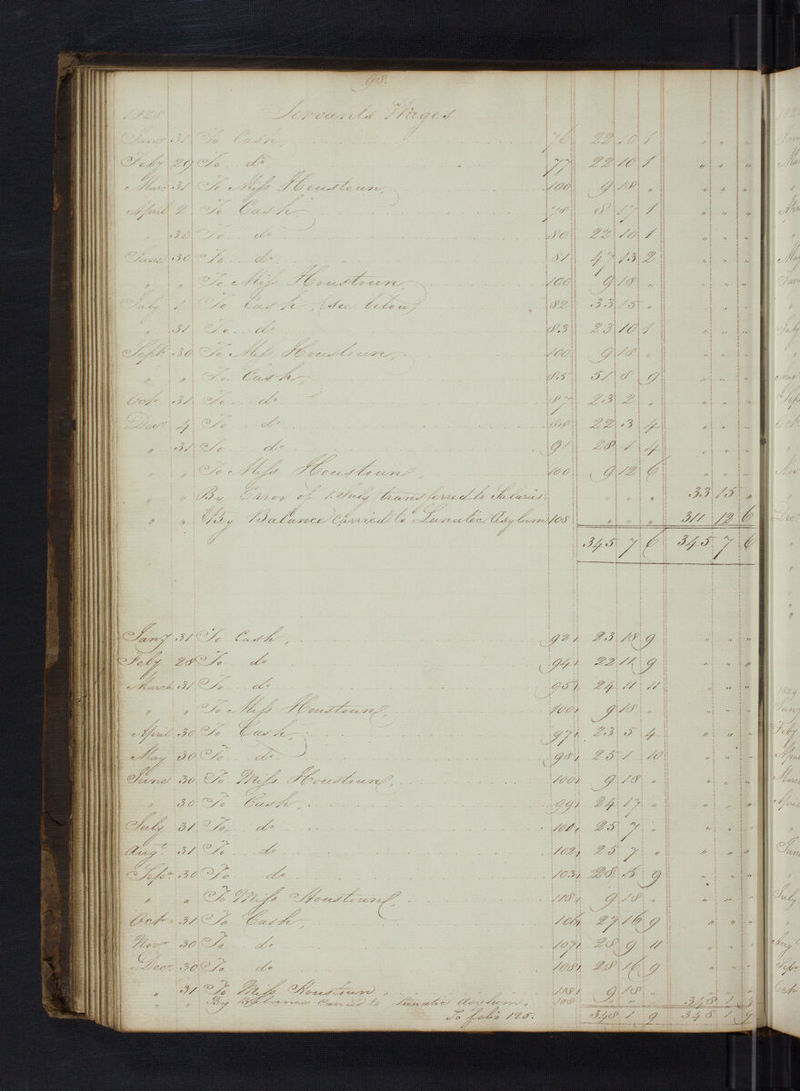 98.
1828 Servants Wages
Jany 31 To Cash 76 22 10 1 " " "
Feby 29 To do 77 22 10 1 " " "
Mar 31 To Miss Houstoun 100 9 18 " " " "
April 2 To Cash 78 8 17 1 " " "
30 To do 80 22 10 1 " " "
June 30 To do 81 47 13 2 " " "
" " To Miss Houstoun 100 9 18 " " " "
July 1 To Cash (see below) 82 33 15 "
" 31 To do 83 23 10 1 " " "
Sept 30 To Miss Houstoun 100 9 18 " " " "
" " To Cash 85 51 8 9 " " "
Octr 31 To do 87 23 2 " " " "
Decr 4 To do 88 22 3 4 " " "
" 31 To do 91 28 1 4 " " "
" " To Miss Houstoun 100 9 12 6 " " "
" " By Error of 1 July transferred to Salaries " " " 33 15 "
" " By Balance Carried to Lunatic Asylum 108 " " " 311 12 6
345 7 6 345 7 6
Jany 31 To Cash 92 23 18 9 " " "
Feby 28 To do 94 22 11 9 " " "
March 31 To do 95 24 11 11 " " "
" " To Miss Houstoun 100 9 18 " " " "
April 30 To Cash 97 23 5 4 " " "
May 30 To do 98 25 1 10 " " "
June 30 To Miss Houstoun 100 9 18 " " " "
" 30 To Cash 99 24 17 " " " "
July 31 To do 25 7 " " " "
Augt 31 To do 102 25 7 " " " "
Sepr 30 To do 103 28 15 9 " " "
" " To Miss Houstoun 118 9 18 " " " "
Octr 31 To Cash 106 27 16 9 " " "
Novr 30 To do 107 28 9 11 " " "
Decr 30 To do 108 28 16 9 " " "
" 31 To Miss Houstoun 118 9 18 " " " "
" " By Balance Carried to Lunatic Asylum 108 " " " 348 1 9
To folio 125. 348 1 9 348 1 9